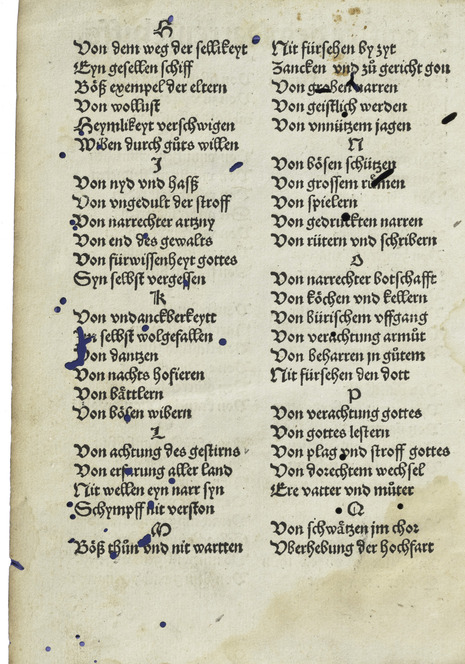 H
Von dem weg der sellikeyt
Eyn gesellen schiff
Böß exempel der eltern
Von wollust
Heymlikeyt verschwigen
Wiben durch gůts willen
I
Von nyd vnd haß
Von vngedult der stroff
Von narrechter artzny
Von end des gewalts
Von fürwissenheyt gottes
Syn selbst vergessen
K
Von vndanckberkeytt
selbst wolgefallen
Von dantzen
Von nachts hofieren
Von bättlern
Von bösen wibern
L
Von achtung des gestirns
Von erfarung aller land
Nit wellen eyn narr syn
Schympff nit verston
M
Böß thůn vnd nit wartten
Nit fürsehen by zyt
Zancken vnd zů gericht gon
Von groben narren
Von geistlich werden
Von vnnützem jagen
N
Von bösen schützen
Von grossem růmen
Von spielern
Von gedruckten narren
Von rütern vnd schribern
O
Von narrechter botschafft
Von köchen vnd kellern
Von bürischem vffgang
Von verachtung armůt
Von beharren jn gůtem
Nit fürsehen den dott
P
Von verachtung gottes
Von gottes lestern
Von plag vnd stroff gottes
Von dorechtem wechsel
Ere vatter vnd můter
Q
Von schwätzen jm chor
Vberhebung der hochfart